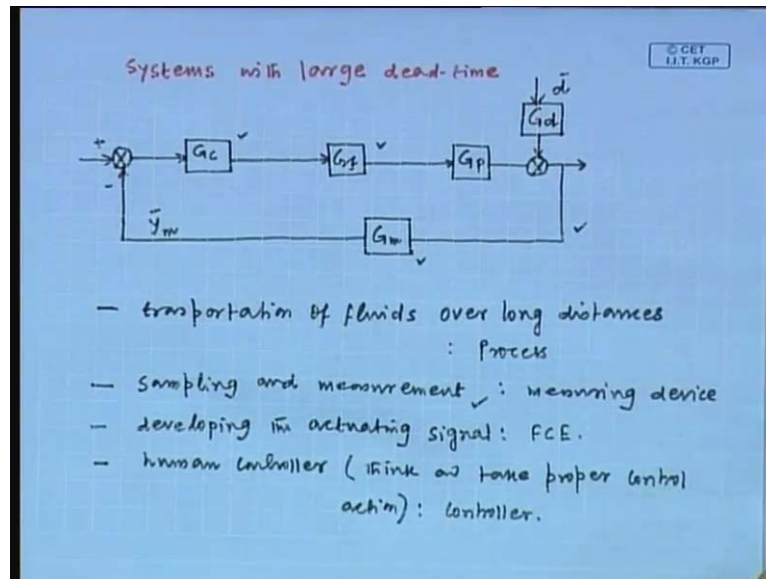 Systems with large dead-time
© CET
I.I.T. KGP
d̄
Gd
+
Gc
Gf
Gp
-
ȳm
Gm
- trasportation of fluids over long distances
: Process
- Sampling and measurement : measuring device
- developing the actuating signal: FCE.
- human controller (think and take proper control
action): controller.